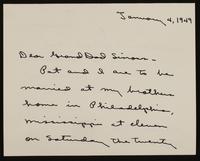 January 4, 1949
Dear Grand Dad Simons -
Pat and I are to be
married at my brothers
home in Philadelphia,
Mississippi at eleven
on Saturday the twenty